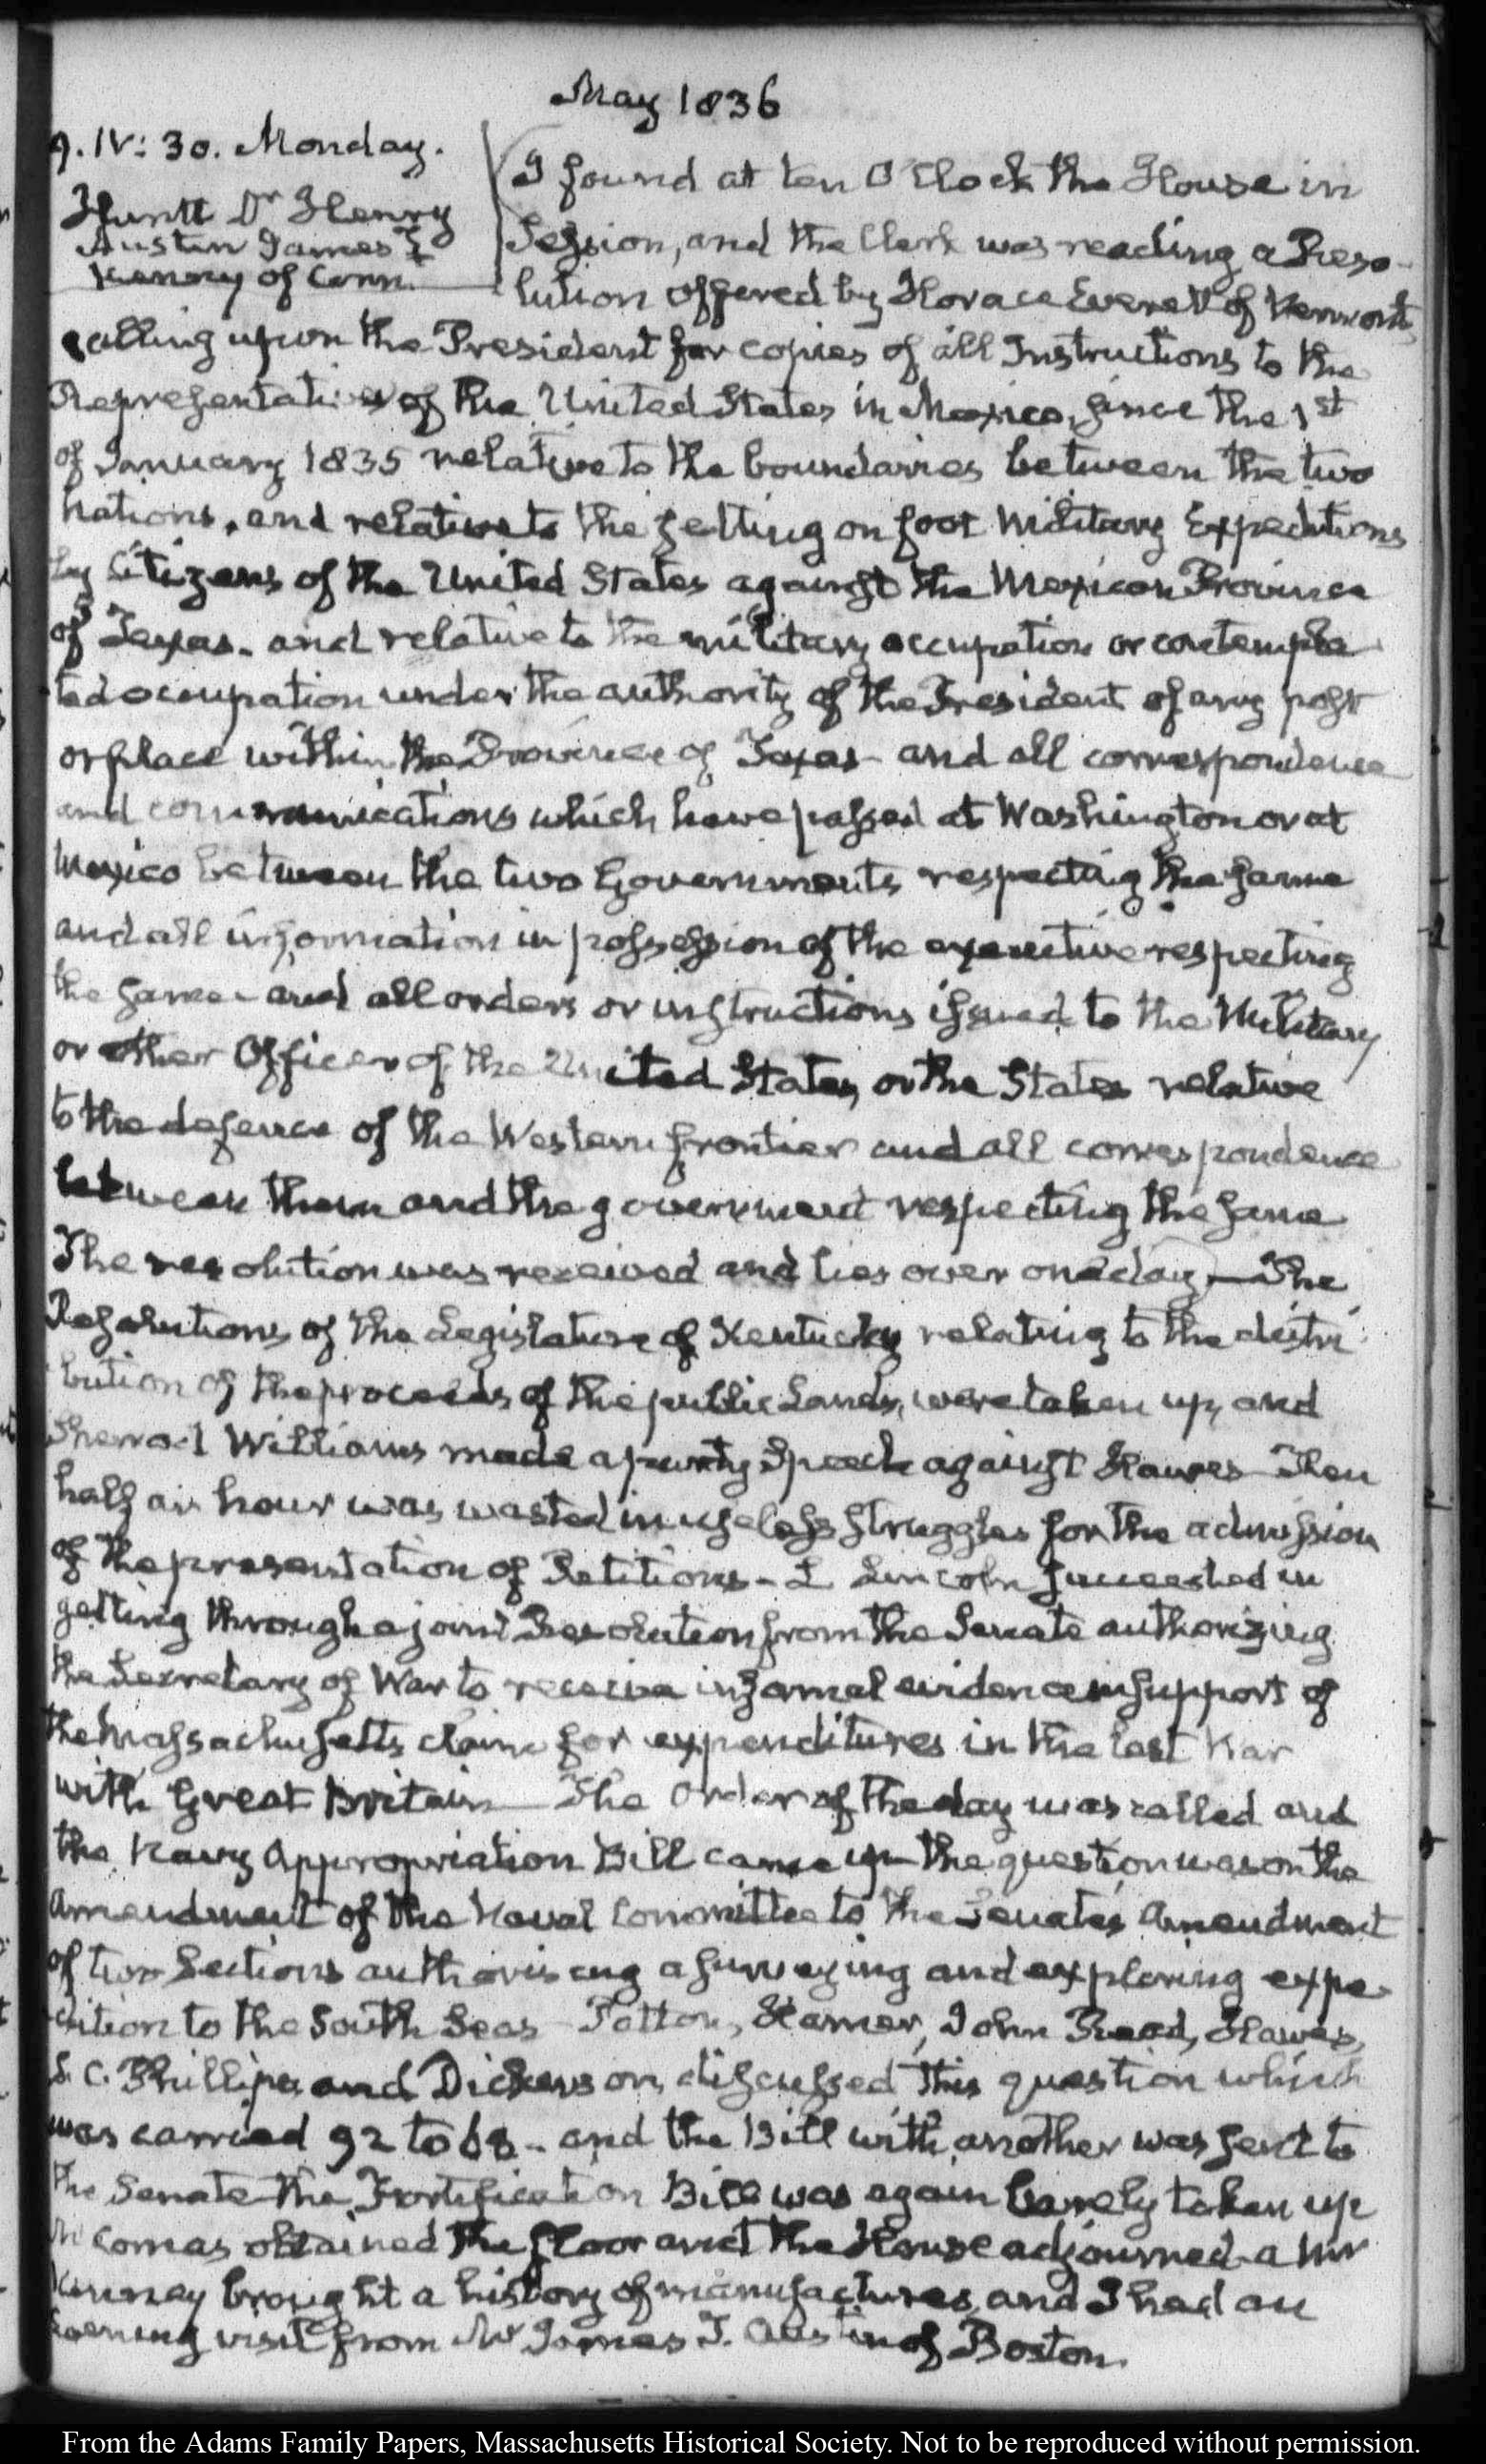 May 1836
9. IV: 30. Monday.
Huntt Dr Henry
Austin James T
Kenney of Connt.
I found at ten O'Clock the House in
Session, and the Clerk was reading a Reso-
lution offered by Horace Everett of Vermont,
calling upon the President for copies of all Instructions to the
Representatives of the United States in Mexico, since the 1st
of January 1835 relative to the boundaries between the two
Nations, and relative to the setting on foot Military Expeditions
by Citizens of the United States against the Mexican Province
of Texas. and relative to the military occupation or contempla
ted occupation under the authority of the President of any post
or place within the Province of Texas- and all correspondence
and communications which have passed at Washington or at
Mexico between the two Governments respecting the same
and all information in possession of the executive respecting
the same- and all orders or instructions issued to the Military
or other Officer of the United States, or the States relative
to the defence of the Western frontier and all correspondence
between them and the government respecting the same
The resolution was received and lies over one day- The
Resolutions of the Legislature of Kentucky relating to the distri
bution of the proceeds of the public Lands, were taken up, and
Sherrod Williams made a party Speech against Hawes- Then
half an hour was wasted in useless struggles for the admission
of the presentation of Petitions- L Lincoln succeeded in
getting through a joint Resolution from the Senate authorizing
the Secretary of War to receive informal evidence in support of
the Massachusetts claim for expenditures in the last War
with Great Britain- The Order of the day was called and
the Navy Appropriation Bill came up- the question was on the
Amendment of the Naval Committee to the Senate's Amendment
of two Sections authorising a surveying and exploring expe-
dition to the South Seas- Patton, Hamer, John Reed, Hawes,
S. C. Phillips, and Dickerson, discussed this question which
was carried 92 to 68- and the Bill with another was sent to
the Senate- the Fortification Bill was again barely taken up
McComas obtained the floor and the House adjourned- a Mr
Kenney brought a history of manufactures, and I had an
Evening visit from Mr James T. Austin of Boston.
From the Adams Family Papers, Massachusetts Historical Society. Not to be reproduced without permission.